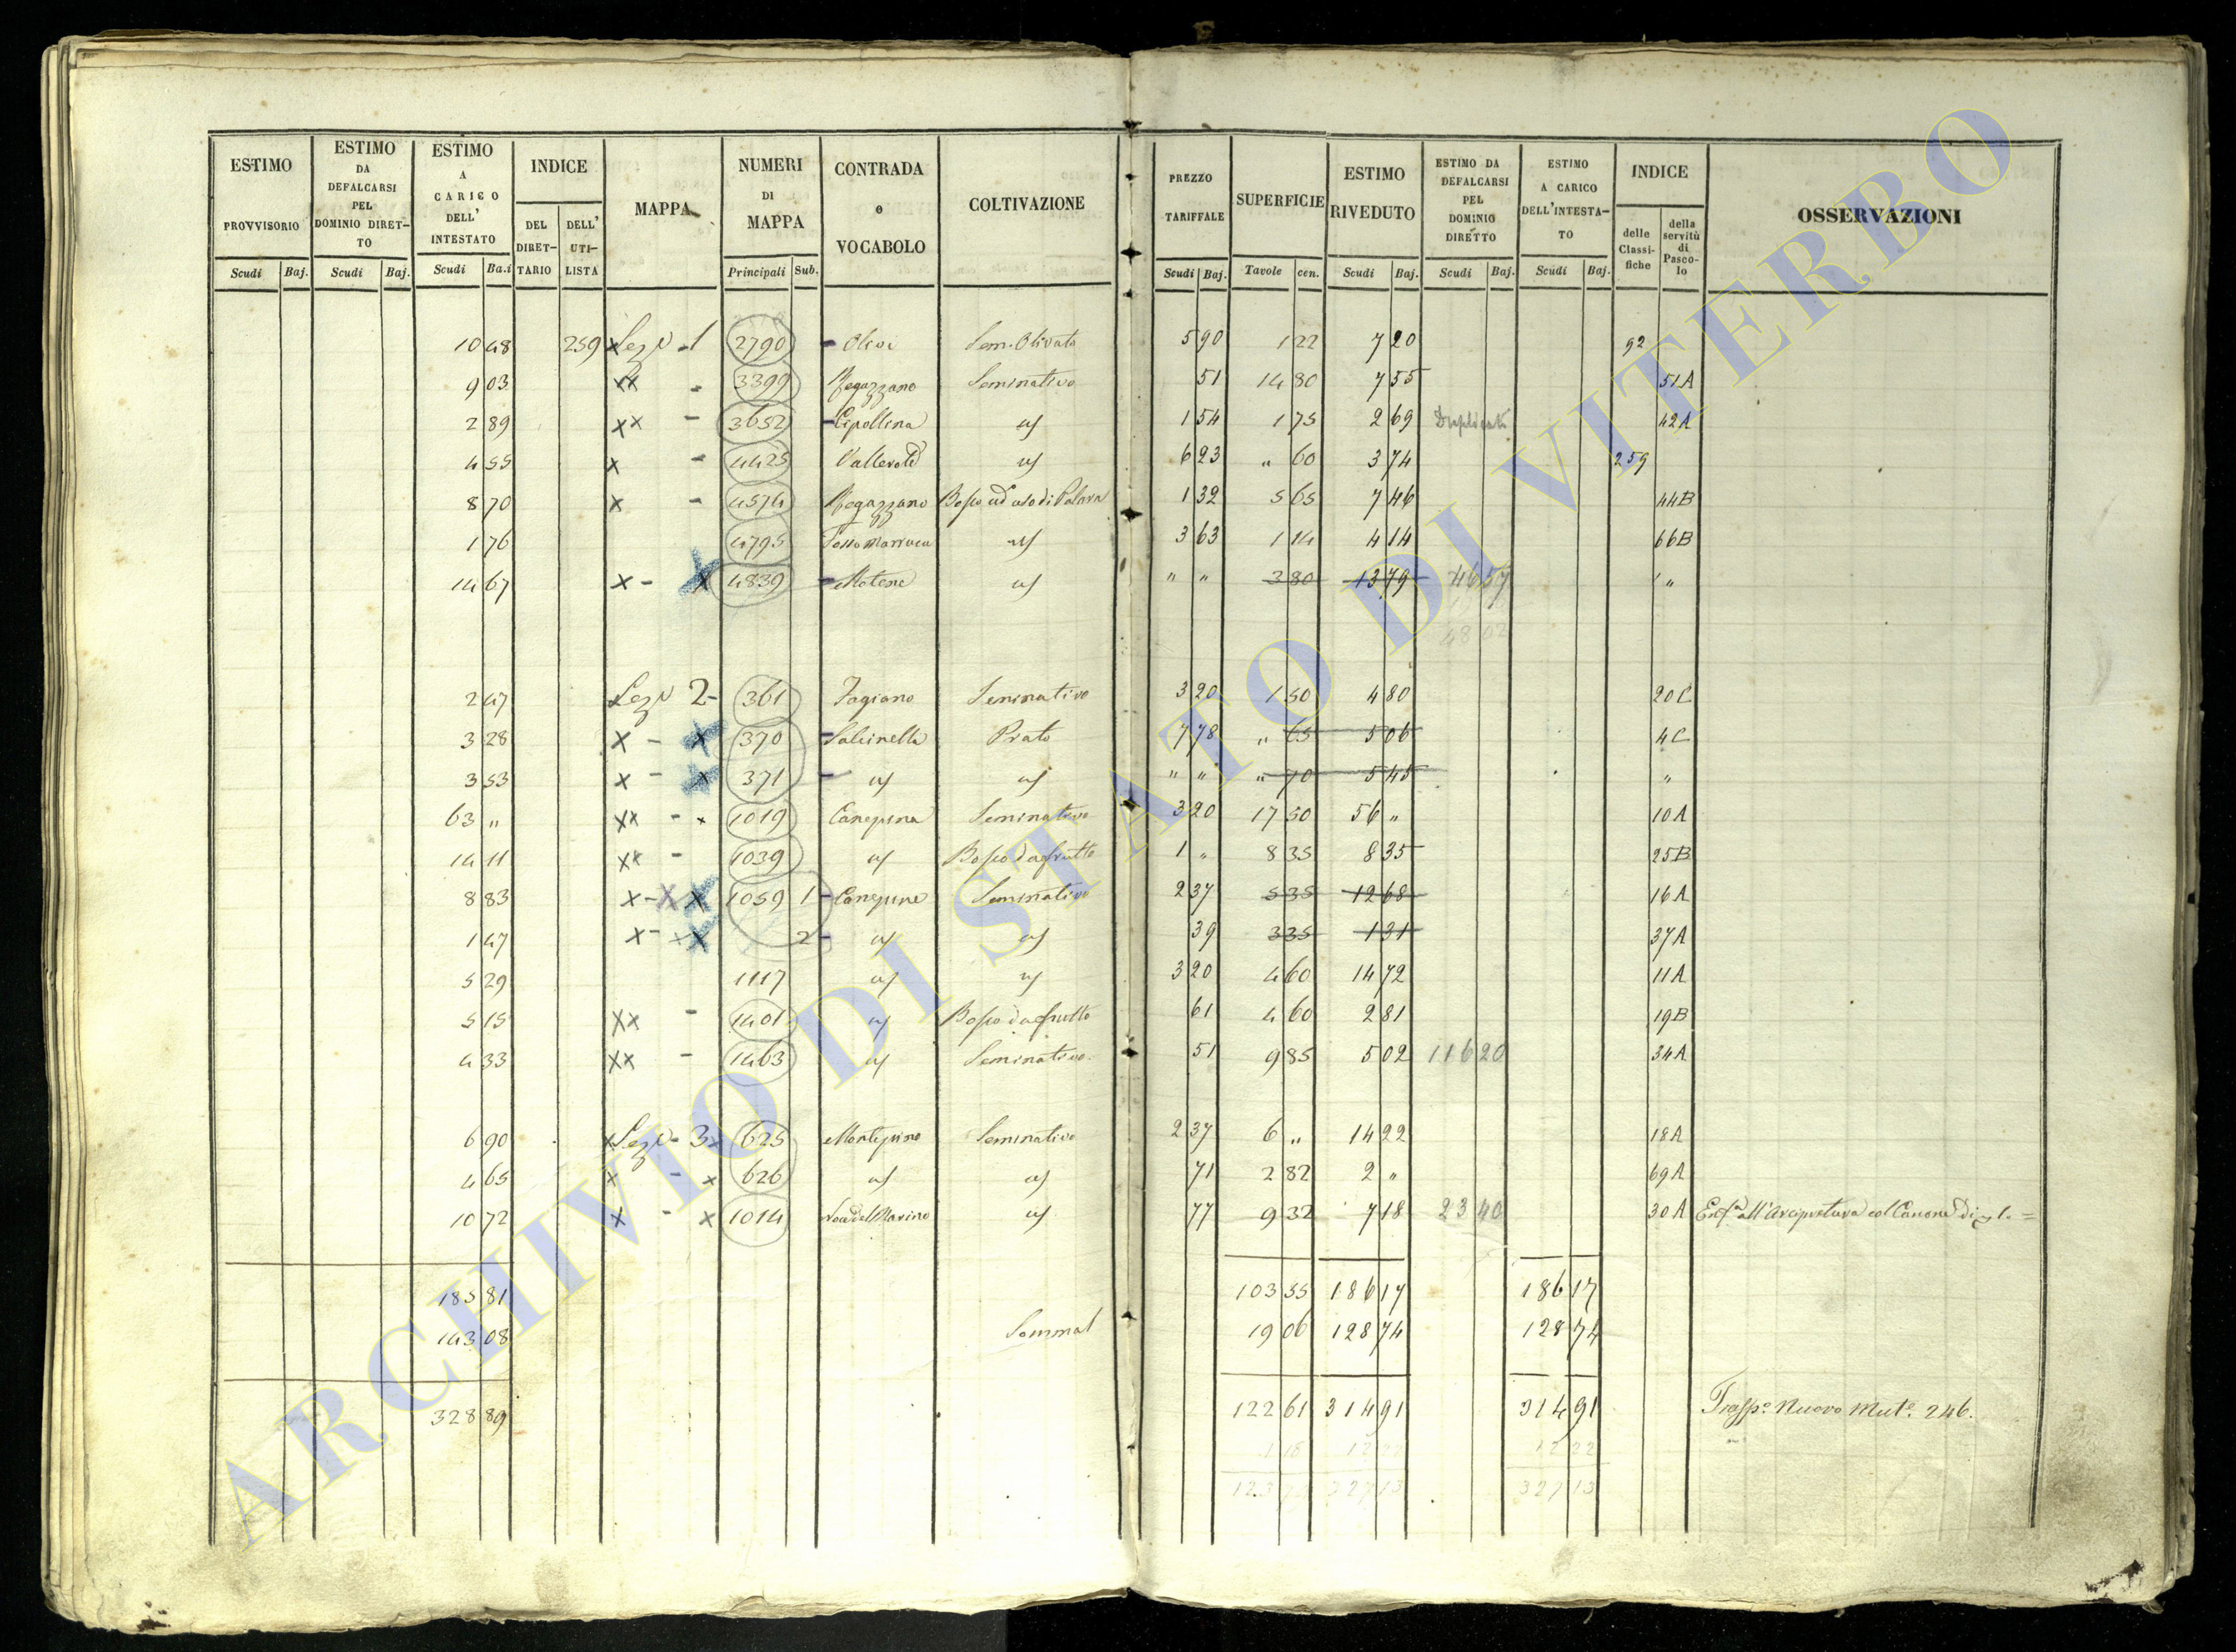 ESTIMO PROVVISORIO
ESTIMO DA DEFALCARSI PEL DOMINIO DIRETTO
ESTIMO A CARICO DELL' INTESTATO
INDICE
DEL DIRETTARIO
DELL' UTILISTA
MAPPA
NUMERI DI MAPPA
CONTRADA o VOCABOLO
COLTIVAZIONE
PREZZO TARIFFALE
SUPERFICIE
ESTIMO RIVEDUTO
ESTIMO DA DEFALCARSI PEL DOMINIO DIRETTO
ESTIMO A CARICO DELL'INTESTATO
INDICE
delle Classifiche
della servitù di Pascolo
OSSERVAZIONI
Scudi Baj. Scudi Baj. Scudi Ba.i Principali Sub. Scudi Baj. Tavole cen. Scudi Baj. Scudi Baj. Scudi Baj.
10 48 259 x Sez 1 2790 Olivi Sem. Olivato 5 90 1 22 7 20 92
9 03 xx - 3399 Regazzano Seminativo 51 14 80 7 55 51A
2 89 xx - 3652 Cipollina uf 1 54 1 75 2 69 Duplicato 42A
4 55 x - 4425 uf 6 23 " 60 3 74 259
8 70 x - 4574 Regazzano Bosco ad uso di Palara 1 32 5 65 7 46 44B
1 76 4795 Fosso Marruca uf 3 63 1 14 4 14 66B
14 67 x - x 4839 Matene uf " " 3 80 13 79 46 57 "
48 02
2 47 Sez 2 - 361 Fagiano Seminativo 3 20 1 50 4 80 20C
3 28 x - x 370 Salcinella Prato 7 78 " 65 5 06 4C
3 53 x - x 371 uf uf " " " 70 5 45 "
63 " xx - x 1019 Canepina Seminativo 3 20 17 50 56 " 10A
14 11 xx - 1039 uf Bosco da frutto 1 " 8 35 8 35 25B
8 83 x - x x 1059 1 Canepine Seminativo 2 37 5 35 12 68 16A
1 47 x - x x 2 uf uf 39 3 35 1 31 37A
5 29 1117 uf uf 3 20 4 60 14 72 11A
5 15 xx - 1401 uf Bosco da frutto 61 4 60 2 81 19B
4 33 xx - 1463 uf Seminativo 51 9 85 5 02 116 20 34A
6 90 x Sez - 3 x 625 Montepino Seminativo 2 37 6 " 14 22 18A
4 65 x - x 626 uf uf 71 2 82 2 " 69A
10 72 x - x 1014 uf 77 9 32 7 18 23 40 30A Enf. all'Arcipretura col Canone di
185 81 103 55 186 17 186 17
143 08 Sommat 19 06 128 74 128 74
328 89 122 61 314 91 314 91 Trasp.o Nuovo Mut.e 246.
1 18 12 22 12 22
327 13 327 13
ARCHIVIO DI STATO DI VITERBO